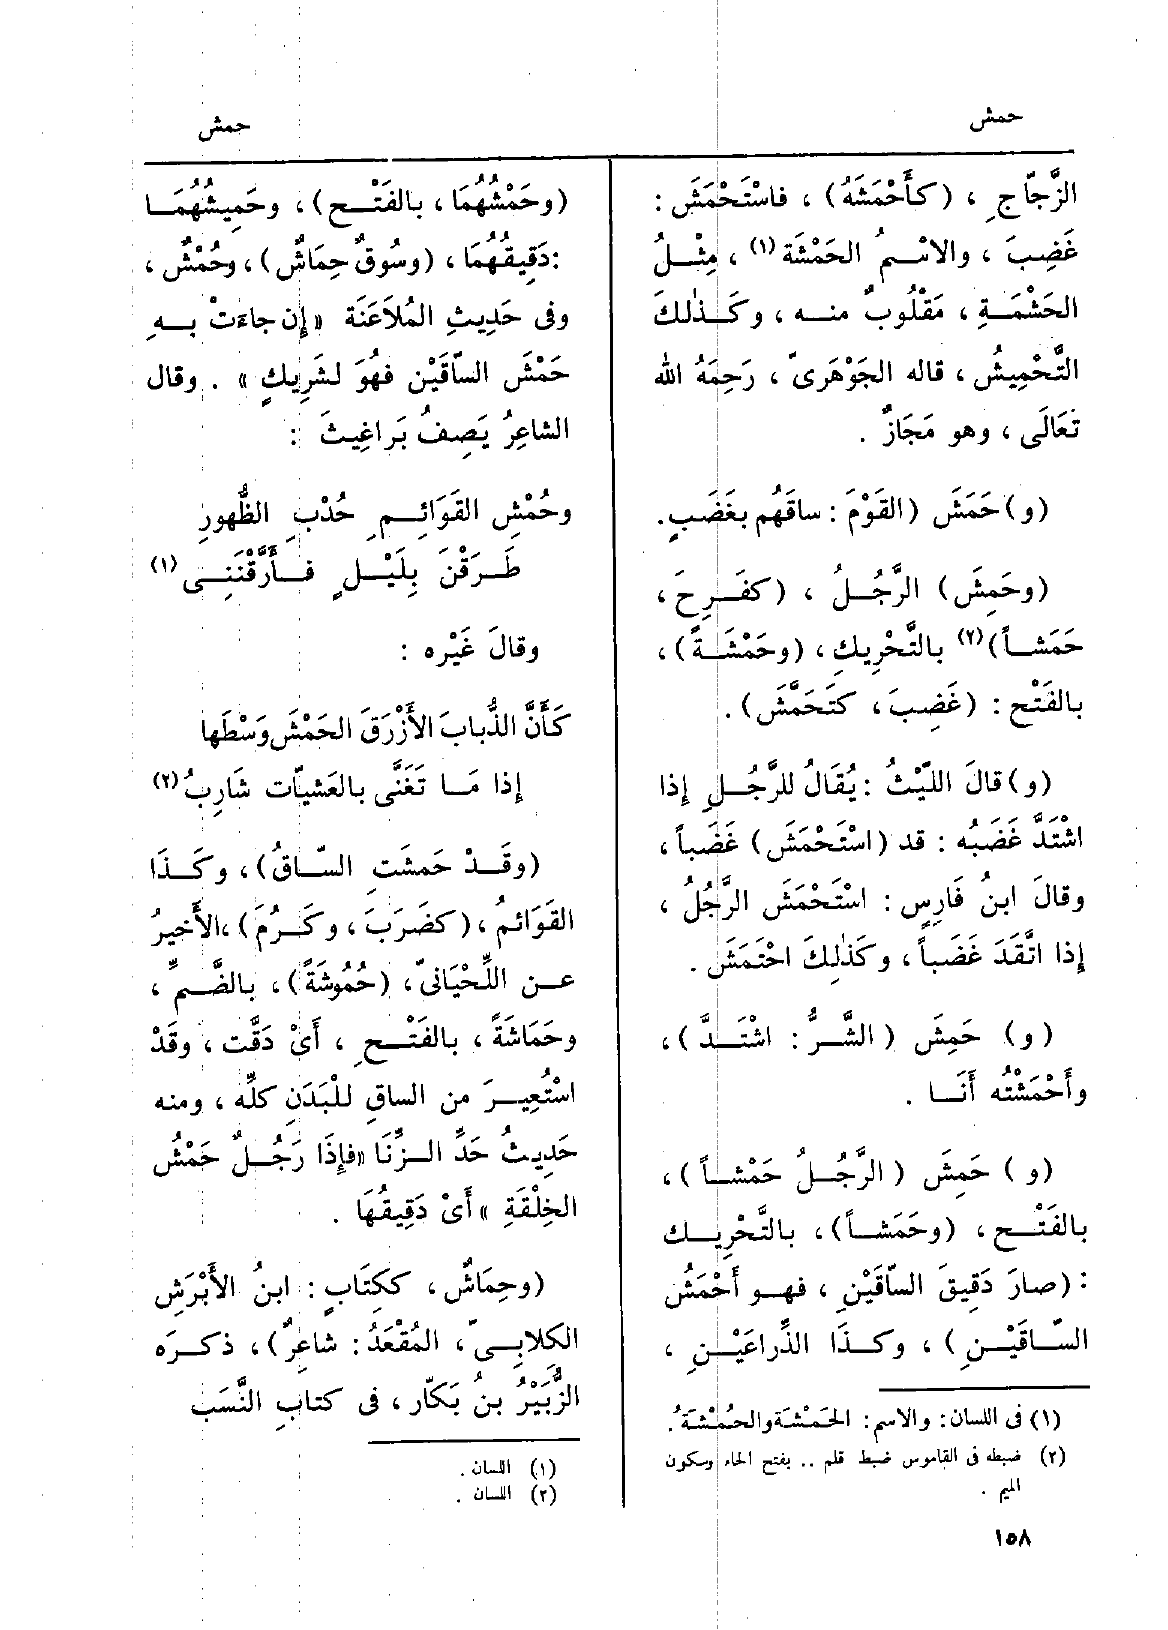 حمش
حمش
الزَّجّاجِ ، (كأَحْمَشَهُ) ، فاسْتَحْمَشَ :
غَضِبَ ، والاسْمُ الحَمْشَة (١) ، مِثْلُ
الحَشْمَةِ ، مَقْلُوبٌ منه ، وكَذٰلكَ
التَّحْمِيشُ ، قاله الجَوْهَرِىّ ، رَحِمَهُ الله
تَعَالَى ، وهو مَجَازٌ .
(و) حَمَشَ (القَوْمَ : ساقَهُم بغَضَبٍ.
(وحَمِشَ) الرَّجُلُ ، (كفَرِحَ ،
حَمَشاً) (٢) بالتَّحْرِيكِ ، (وحَمْشَةً) ،
بالفَتْح : (غَضِبَ ، كتَحَمَّشَ) .
(و) قالَ اللَّيْثُ : يُقَالُ للرَّجُلِ إذا
اشْتَدَّ غَضَبُه : قد (اسْتَحْمَشَ) غَضَباً ،
وقالَ ابنُ فَارِس : اسْتَحْمَشَ الرَّجُلُ ،
إذا اتَّقَدَ غَضَباً ، وكَذٰلِكَ احْتَمَشَ .
(و) حَمِشَ (الشَّرُّ : اشْتَدَّ) ،
وأَحْمَشْتُه أَنَا .
(و) حَمِشَ (الرَّجُلُ حَمْشاً) ،
بالفَتْح ، (وحَمَشاً) ، بالتَّحْرِيك
: (صارَ دَقِيقَ السّاقَيْنِ ، فهو أَحْمَشُ
السّاقَيْنِ) ، وكَذَا الذِّراعَيْنِ ،
(١) فى اللسان : والاسم : الحَمْشَة والحُمْشَةُ .
(٢) ضبطه فى القاموس ضبط قلم .. بفتح الحاء وسكون
الميم .
(وحَمْشُهُمَا ، بالفَتْح) ، وحَمِيشُهُمَا
: دَقِيقُهُمَا ، (وسُوقٌ حِمَاشٌ) ، وحُمْشٌ ،
وفى حَدِيثِ المُلاَعَنَة «إن جاءَتْ به
حَمْشَ السّاقَيْن فهُوَ لشَرِيكٍ» . وقال
الشاعِرُ يَصِفُ بَرَاغِيثَ :
وحُمْشِ القَوَائِمِ حُدْبِ الظُّهورِ
طَرَقْنَ بِلَيْلٍ فأَرَّقْنَنِى (١)
وقالَ غَيْره :
كَأَنَّ الذُّبابَ الأَزْرَقَ الحَمْشَ وَسْطَها
إذا مَا تَغَنَّى بالعَشيّات شَارِبُ (٢)
(وقَدْ حَمشَتِ السّاقُ) ، وكَذَا
القَوَائمُ ، (كضَرَبَ ، وكَرُمَ) ، الأَخيرُ
عن اللِّحْيَانىّ ، (حُمُوشَةً) ، بالضَّمِّ ،
وحَمَاشَةً ، بالفَتْحِ ، أَىْ دَقَّت ، وقَدْ
اسْتُعِيرَ من الساقِ للْبَدَنِ كلِّه ، ومنه
حَدِيثُ حَدِّ الزِّنَا «فإِذَا رَجُلٌ حَمْشُ
الخِلْقَةِ » أَىْ دَقِيقُهَا .
(وحِمَاشٌ ، ككِتَابٍ : ابنُ الأَبْرَشِ
الكلابِىّ ، المُقْعَدُ : شاعِرٌ) ، ذكرَه
الزُّبَيْرُ بنُ بَكّار ، فى كتابِ النَّسَب
(١) اللسان .
(٢) اللسان .
١٥٨